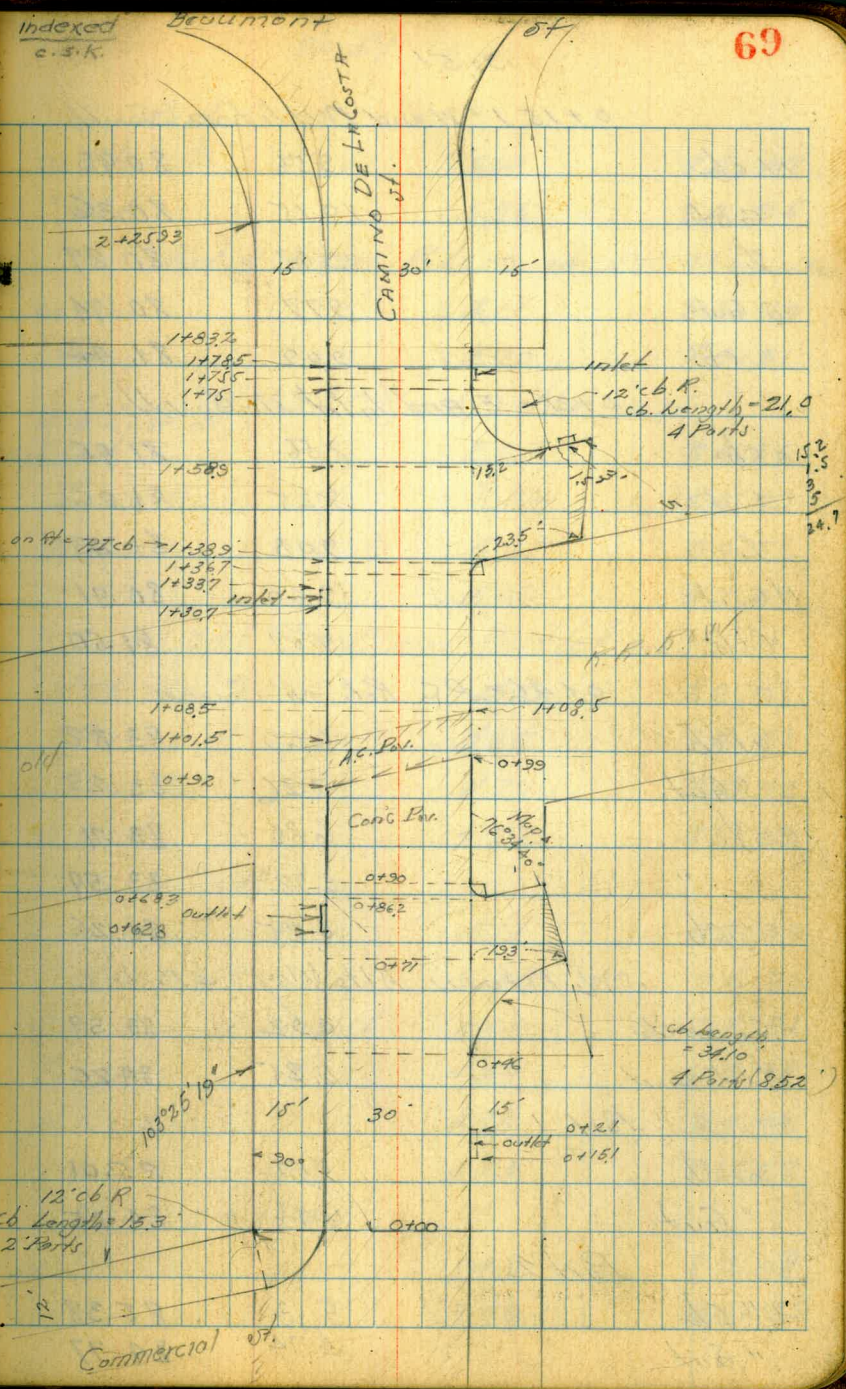 Indexed
C.S.K.
Beaumont
St
69
CAMINO DE LA COSTA
St.
2+25.93
15'
30'
15'
1+83.2
1+78.5
1+75.5
1+75
inlet
12' cb R.
cb. Length = 21.0
4 Parts
1+58.9
15.2
1.5
3'
5
15.2
1.5
3
5
24.7
1+38.9
23.5'
1+36.7
1+33.7
inlet
1+30.7
R.R. R/W
1+08.5
1+08.5
1+01.5
A.C. Pav.
old
0+92
0+99
Conc Pav.
Map
76°34'40"
0+90
0+68.3
outlet
0+86.2
0+62.8
0+71
19.3'
cb Length
= 34.10'
4 Parts (8.52')
0+46
103°25'19"
15'
30'
15'
0+21
outlet
0+15.1
90°
12' cb R
cb Length = 15.3
2 Parts
0+00
12'
Commercial St.